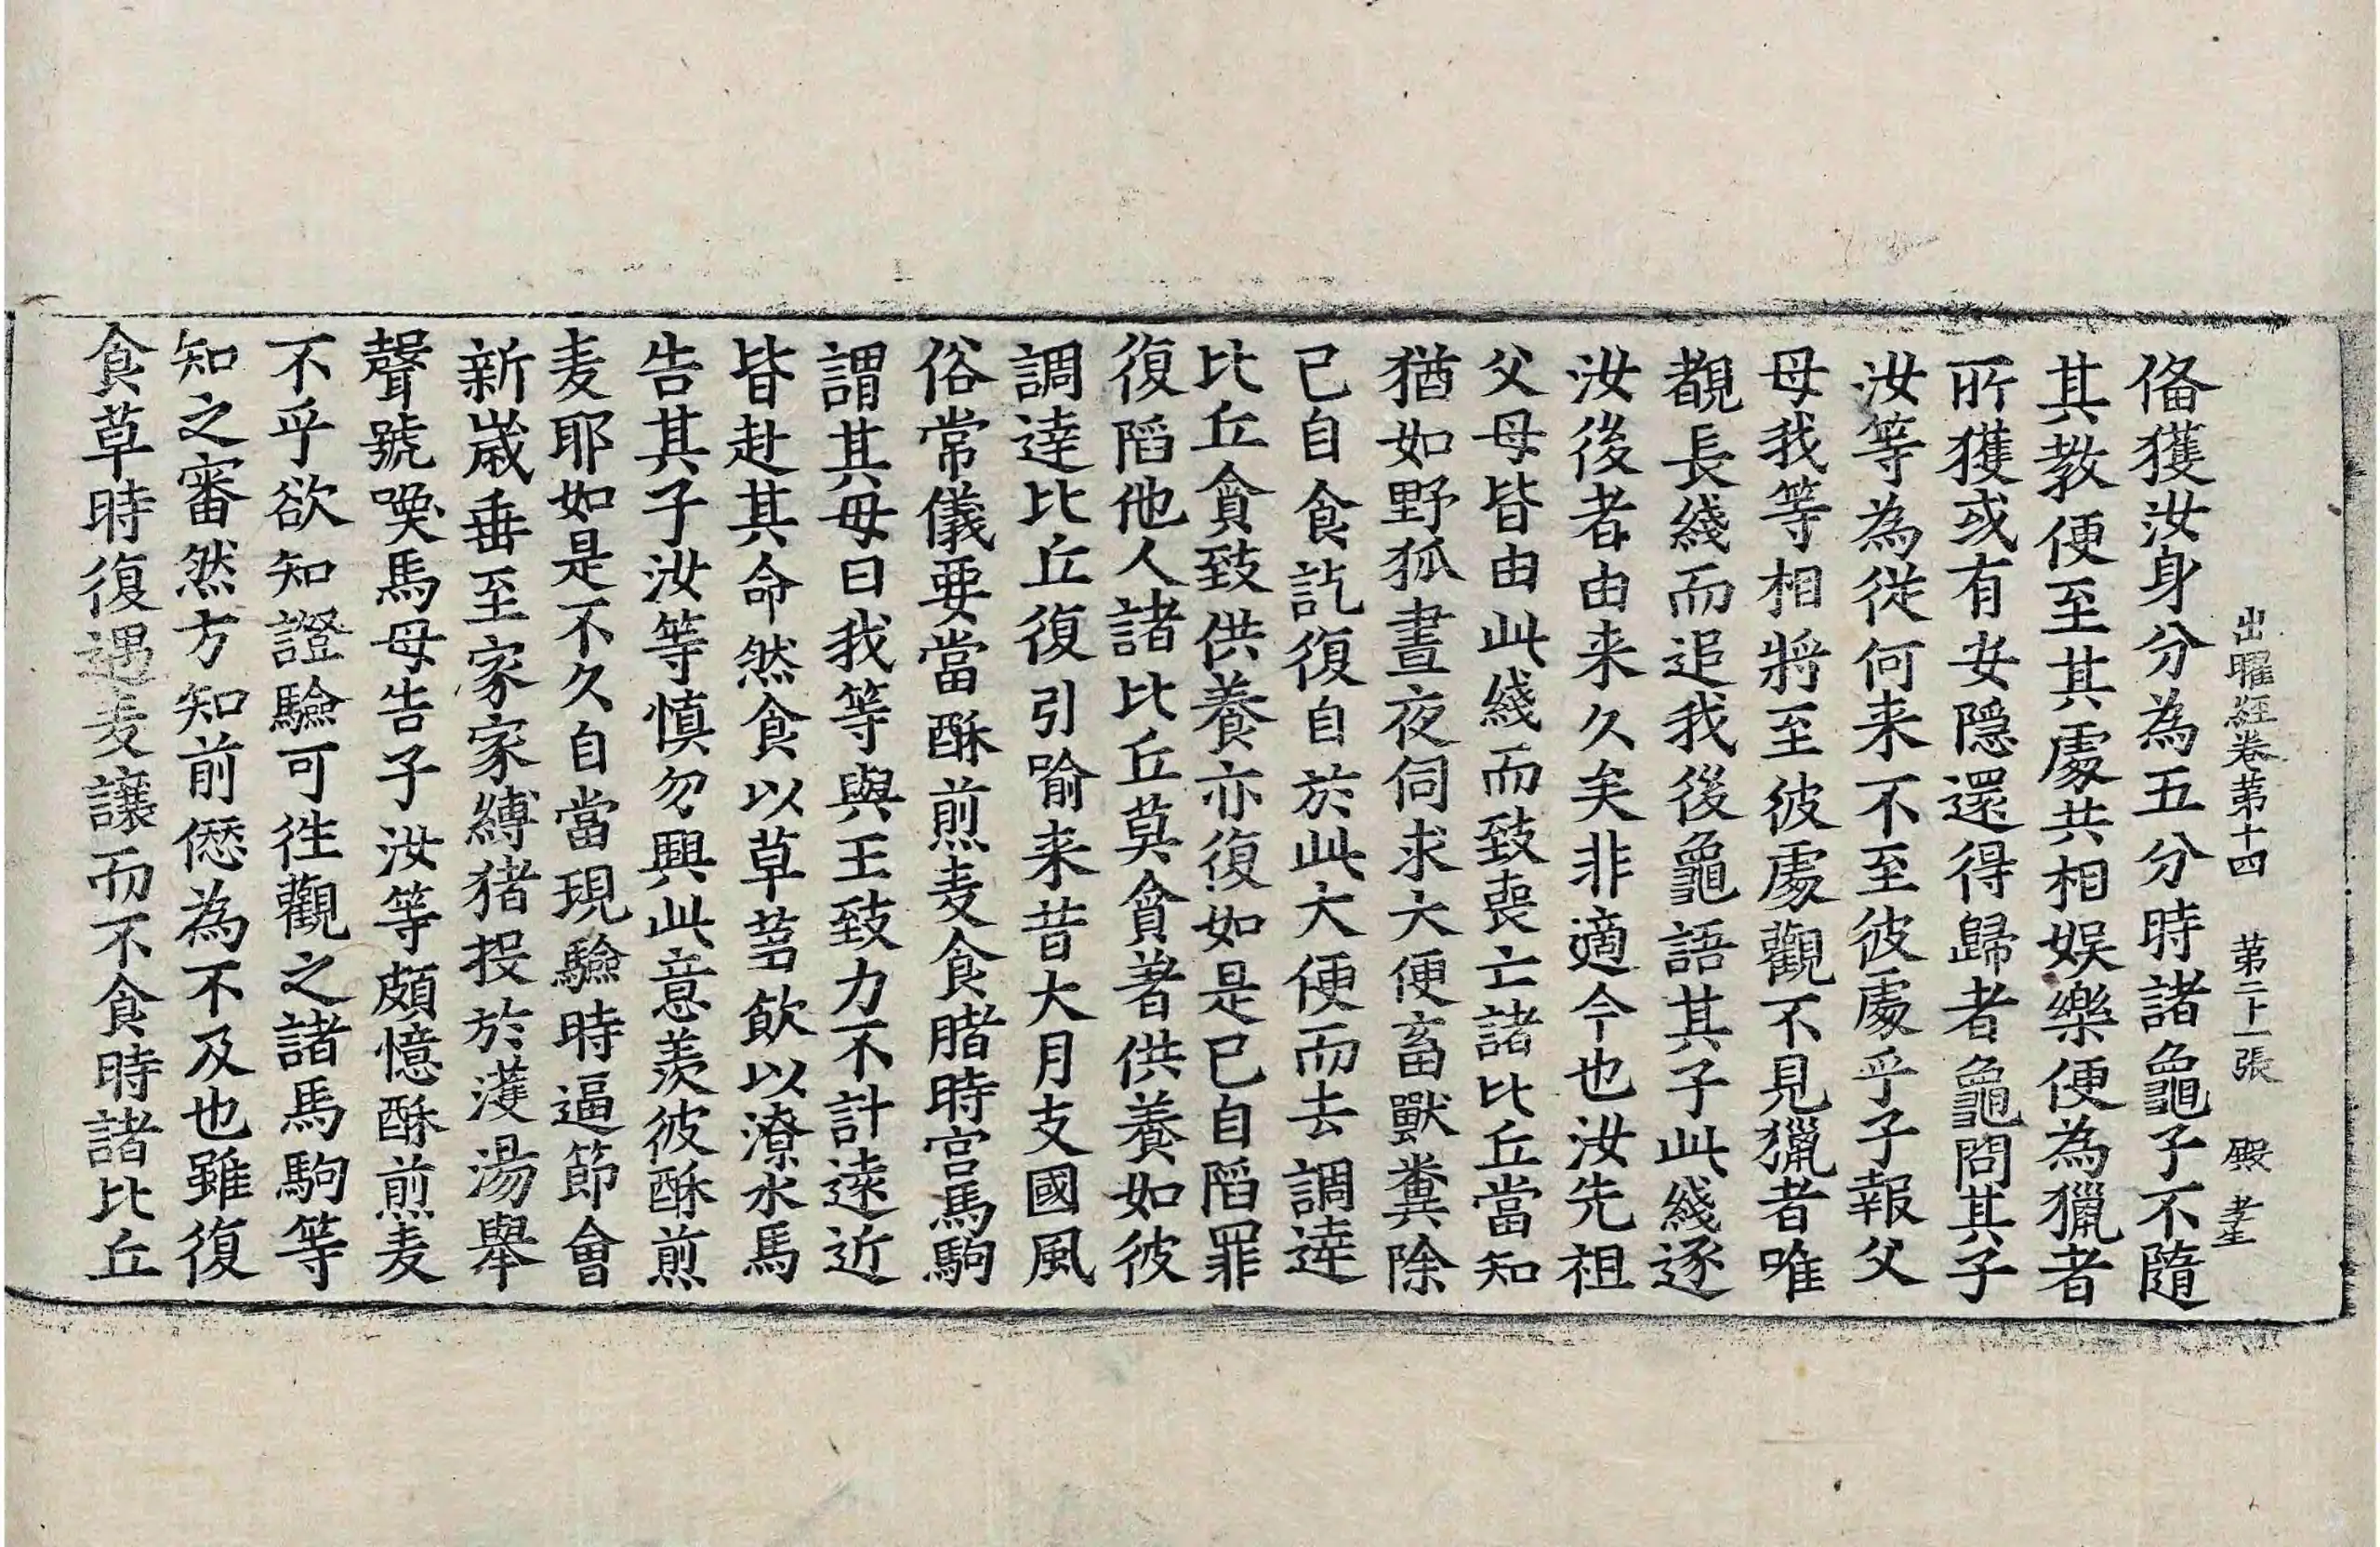 出曜経卷苐十四　苐二十一張　殿　孝生
俻獲汝身分為五分時諸龜子不隨
其教便至其處共相娱樂便為獵者
所獲或有安隠還得歸者龜問其子
汝等為從何来不至彼處乎子報父
母我等相將至彼處觀不見獵者唯
覩長綫而追我後龜語其子此綫逐
汝後者由来久矣非適今也汝先祖
父母皆由此綫而致喪亡諸比丘當知
猶如野狐晝夜伺求大便畜獸糞除
已自食訖復自於此大便而去調達
比丘貪致供養亦復如是已自陷罪
復陷他人諸比丘莫貪著供養如彼
調達比丘復引喻来昔大月支國風
俗常儀要當酥煎麦食賭時宫馬駒
謂其母曰我等與王致力不計逺近
皆赴其命然食以草蒭飲以潦水馬
告其子汝等慎勿興此意羡彼酥煎
麦耶如是不久自當現驗時逼節會
新歳垂至家家縛猪投於濩湯舉
聲號㗛馬母告子汝等頗憶酥煎麦
不乎欲知證驗可徃觀之諸馬駒等
知之審然方知前愆為不及也雖復
食草時復遇麦讓而不食時諸比丘